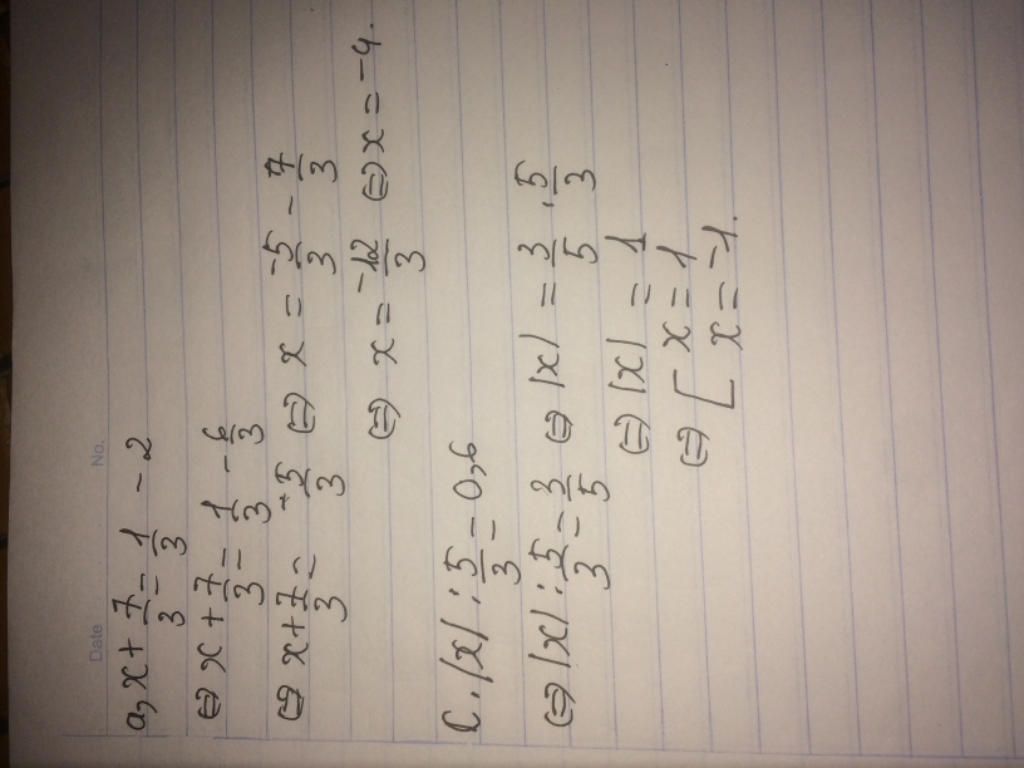 Date No.
a, x + 7/3 = 1/3 - 2
⇔ x + 7/3 = 1/3 - 6/3
⇔ x + 7/3 = -5/3 ⇔ x = -5/3 - 7/3
⇔ x = -12/3 ⇔ x = -4.
C. |x| : 5/3 = 0,6
⇔ |x| : 5/3 = 3/5 ⇔ |x| = 3/5 . 5/3
⇔ |x| = 1
⇔ [ x = 1
x = -1.